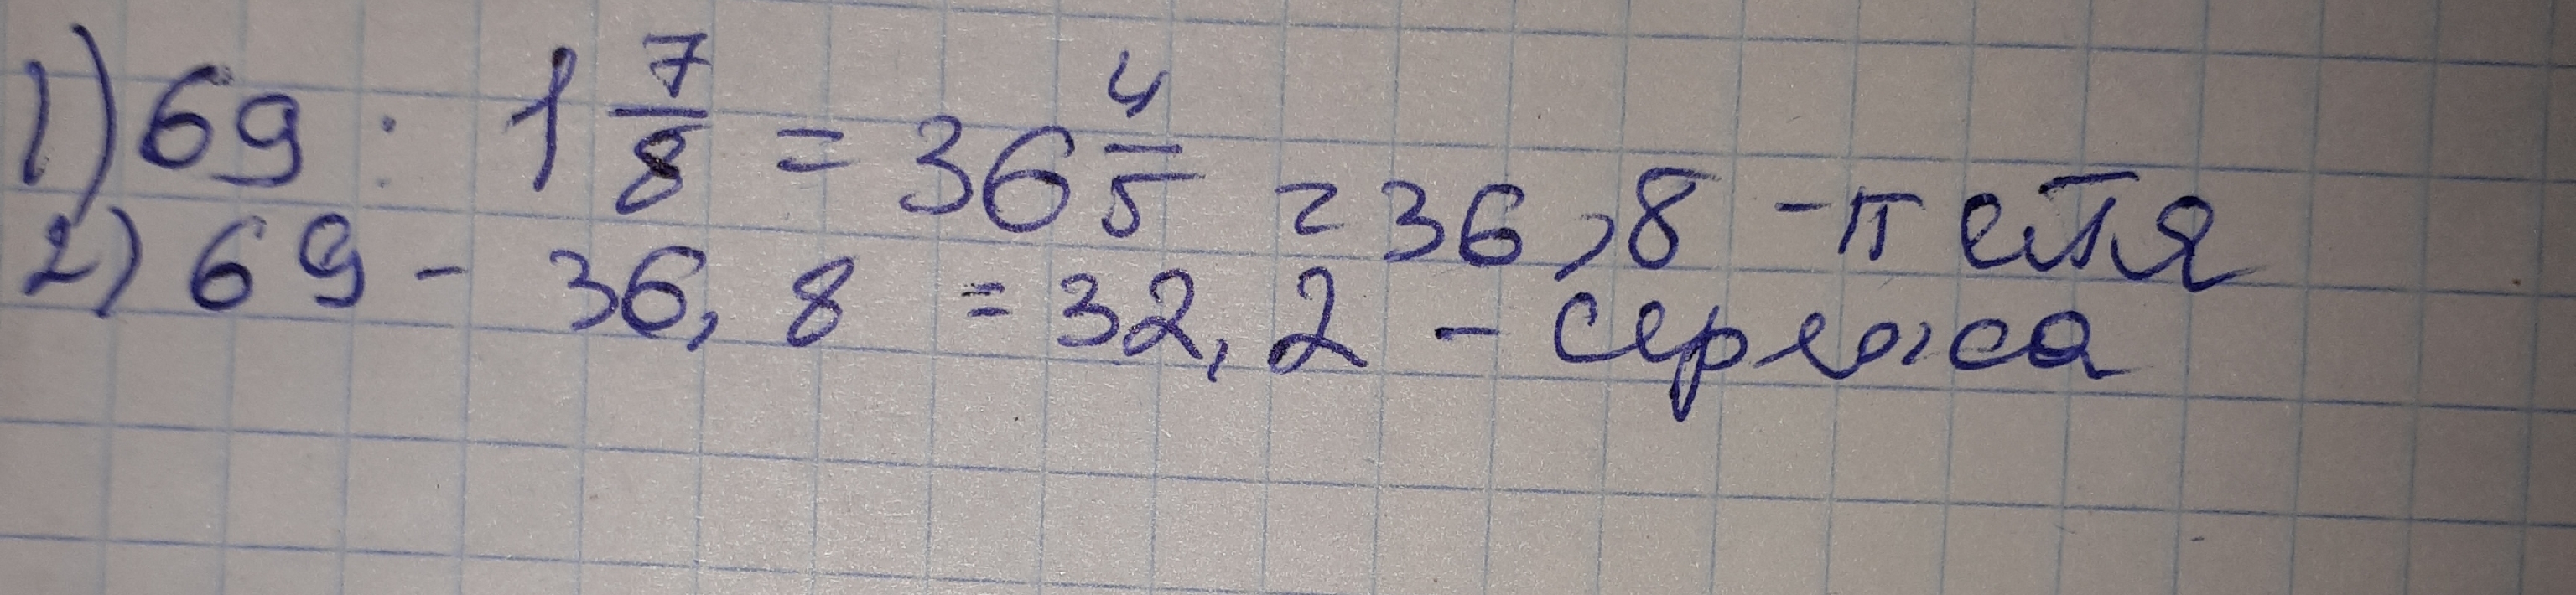 1) 69 : 1 7/8 = 36 4/5 = 36,8 - петя
2) 69 - 36,8 = 32,2 - сережа